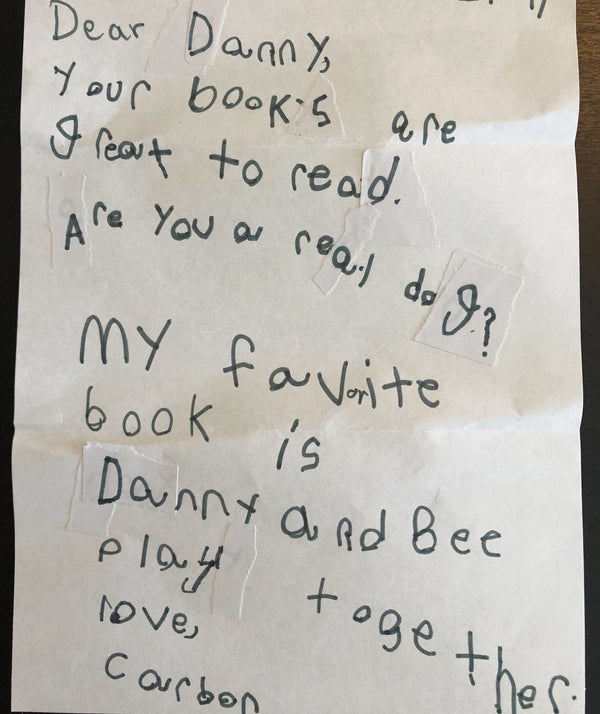 Dear Danny,
Your book's are
great to read.
Are You a real dog?
My favorite
book is
Danny and Bee
play together.
love,
Carbon